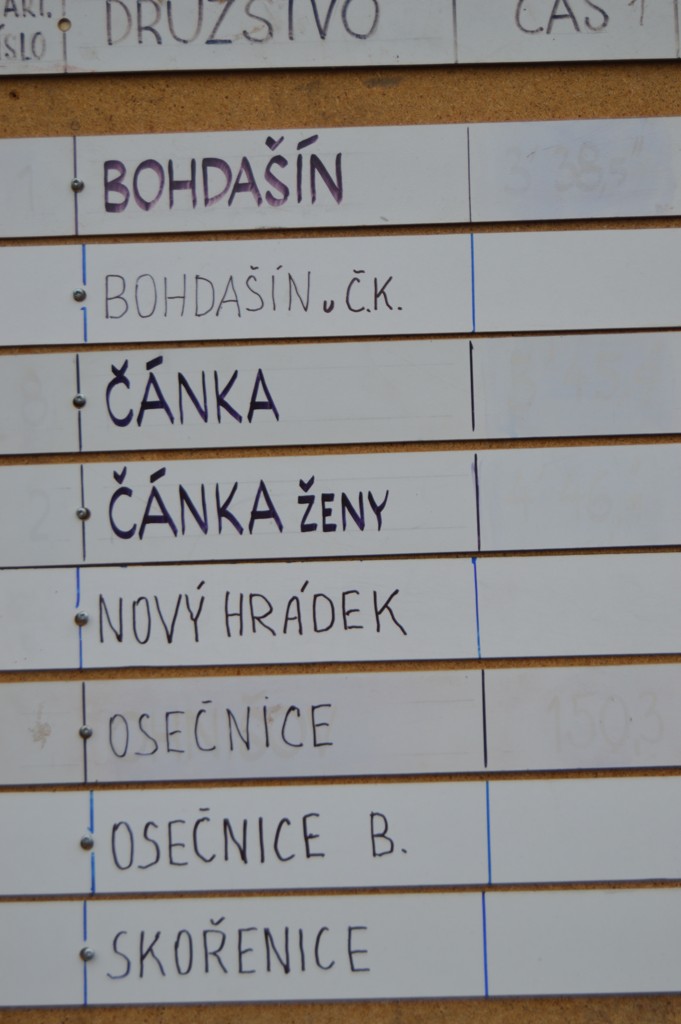 DRUŽSTVO ČAS 1
BOHDAŠÍN
BOHDAŠÍN u Č.K.
ČÁNKA
ČÁNKA ŽENY
NOVÝ HRÁDEK
OSEČNICE
OSEČNICE B.
SKOŘENICE